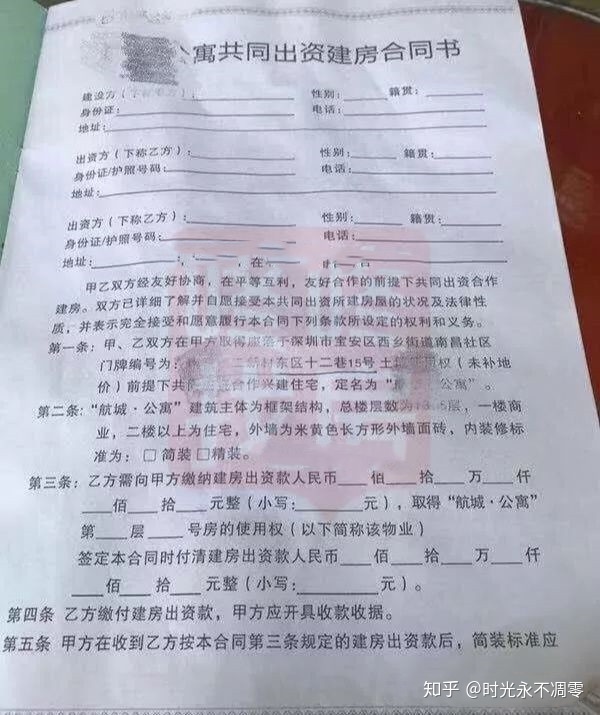 寓共同出资建房合同书
建设方(下称甲方):______ 性别:____ 籍贯:____
身份证:______ 电话:______
地址:______
出资方(下称乙方):______ 性别:____ 籍贯:____
身份证/护照号码:______ 电话:______
地址:______
出资方(下称乙方):______ 性别:____ 籍贯:____
身份证/护照号码:______ 电话:______
地址:______
甲乙双方经友好协商,在平等互利,友好合作的前提下共同出资合作
建房。双方已详细了解并自愿接受本共同出资所建房屋的状况及法律性
质,并表示完全接受和愿意履行本合同下列条款所设定的权利和义务。
第一条:甲、乙双方在甲方取得座落于深圳市宝安区西乡街道南昌社区
门牌编号为: 新村东区十二巷15号 土 权(未补地
价)前提下共 合作兴建住宅,定名为“ 公寓”。
第二条:“航城·公寓”建筑主体为框架结构,总楼层数为 层,一楼商
业,二楼以上为住宅,外墙为米黄色长方形外墙面砖,内装修标
准为:□简装□精装。
第三条:乙方需向甲方缴纳建房出资款人民币____佰____拾____万____仟
____佰____拾____元整(小写:______元),取得“航城·公寓”
第____层____号房的使用权(以下简称该物业)
签定本合同时付清建房出资款人民币____佰____拾____万____仟
____佰____拾____元整(小写:______元)。
第四条 乙方缴付建房出资款,甲方应开具收款收据。
第五条 甲方在收到乙方按本合同第三条规定的建房出资款后,简装标准应
知乎 @时光永不凋零